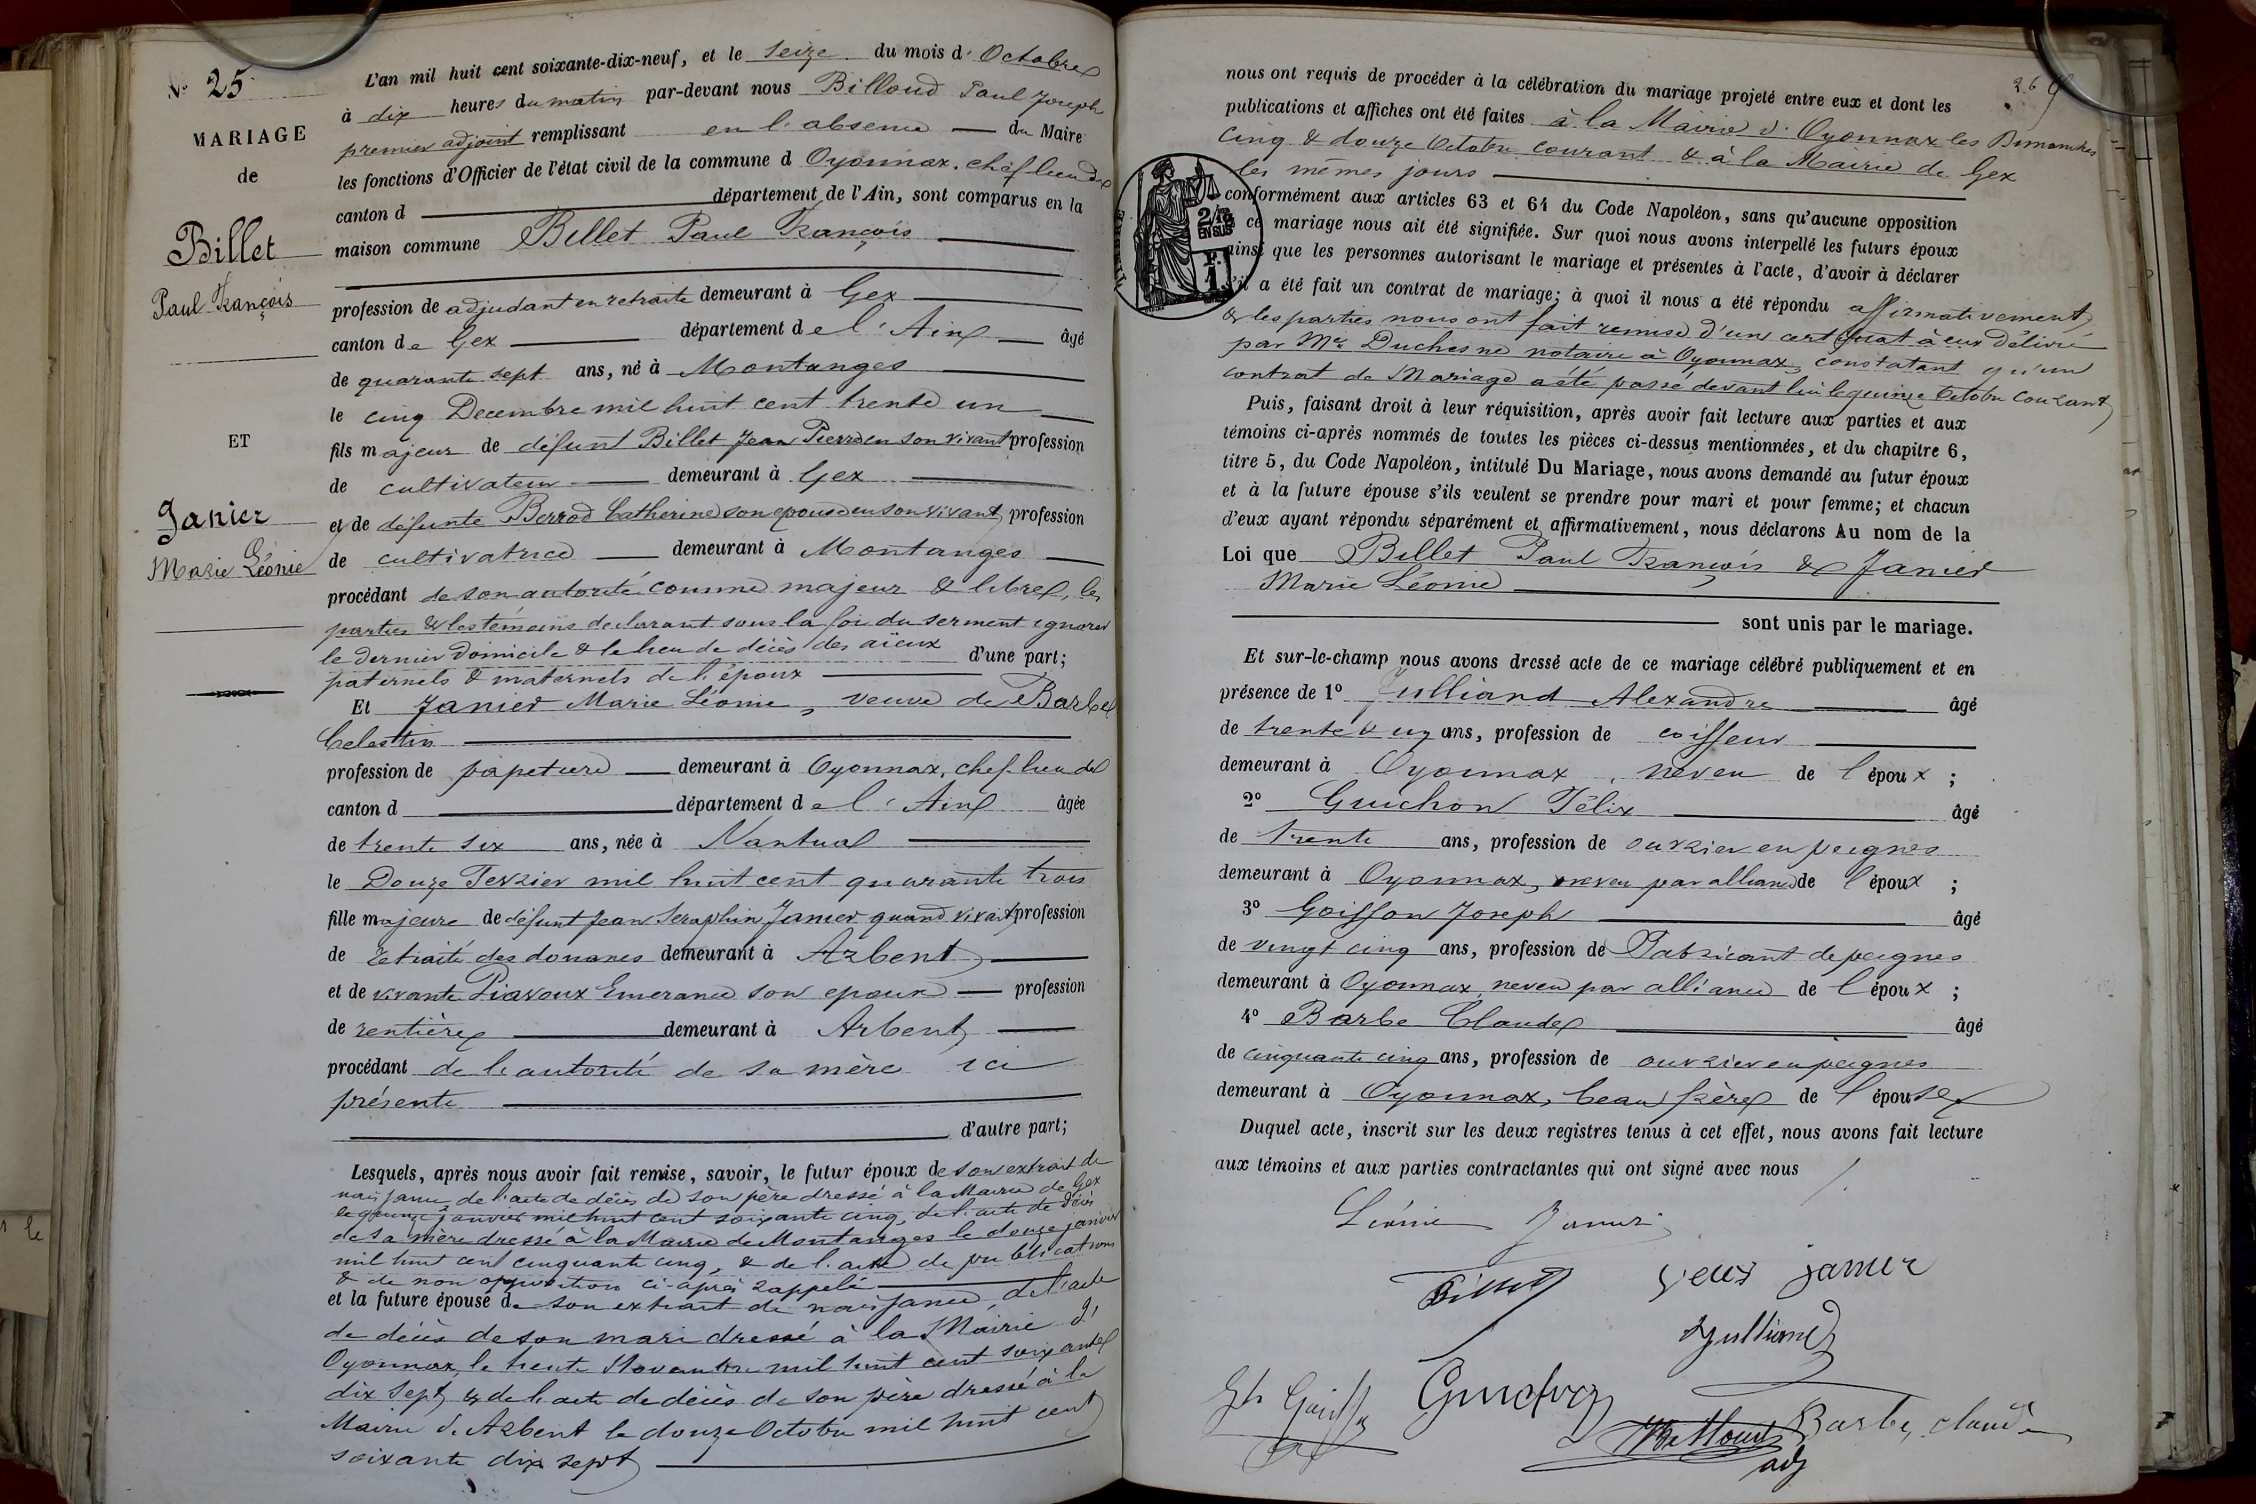 N° 25
MARIAGE
de
Billet
Paul François
ET
Janier
Marie Léonie
L'an mil huit cent soixante-dix-neuf, et le seize du mois d'Octobre
à dix heures du matin par-devant nous Billoud Paul Joseph
premier adjoint remplissant en l'absence du Maire
les fonctions d'Officier de l'état civil de la commune d Oyonnax, chef lieu de
canton d département de l'Ain, sont comparus en la
maison commune Billet Paul François
profession de adjudant en retraite demeurant à Gex
canton de Gex département de l'Ain âgé
de quarante sept ans, né à Montanges
le cinq Decembre mil huit cent trente un
fils majeur de défunt Billet Jean Pierre en son vivant profession
de cultivateur demeurant à Gex
et de défunte Berrod Catherine son epouse en son vivant profession
de cultivatrice demeurant à Montanges
procédant de son autorité comme majeur & libre, les
parties & les témoins declarant sous la foi du serment ignorer
le dernier domicile & le lieu de décès des aïeux
paternels & maternels de l'époux d'une part;
Et Janier Marie Léonie, veuve de Barbe
Celestin
profession de papetiere demeurant à Oyonnax, chef-lieu de
canton d département de l'Ain âgée
de trente six ans, née à Nantua
le Douze Fevrier mil huit cent quarante trois
fille majeure de défunt Jean Seraphin Janier quand vivait profession
de retraité des douanes demeurant à Arbent
et de vivante Piavoux Emerance son epouse profession
de rentière demeurant à Arbent
procédant de l'autorité de sa mère ici
présente
d'autre part;
Lesquels, après nous avoir fait remise, savoir, le futur époux de son extrait de
naissance, de l'acte de décès de son père dressé à la Mairie de Gex
le quinze Janvier mil huit cent soixante cinq, de l'acte de décès
de sa mère dressé à la Mairie de Montanges le douze janvier
mil huit cent cinquante cinq, & de l'acte de publications
& de non opposition ci-après rappelé
et la future épouse de son extrait de naissance, de l'acte
de décès de son mari dressé à la Mairie d'
Oyonnax, le trente Novembre mil huit cent soixante
dix sept, & de l'acte de décès de son père dressé à la
Mairie d'Arbent le douze Octobre mil huit cent
soixante dix sept
nous ont requis de procéder à la célébration du mariage projeté entre eux et dont les
publications et affiches ont été faites à la Mairie d'Oyonnax les Dimanches
cinq & douze Octobre courant & à la Mairie de Gex
les mêmes jours
conformément aux articles 63 et 64 du Code Napoléon, sans qu'aucune opposition
ce mariage nous ait été signifiée. Sur quoi nous avons interpellé les futurs époux
ainsi que les personnes autorisant le mariage et présentes à l'acte, d'avoir à déclarer
s'il a été fait un contrat de mariage; à quoi il nous a été répondu affirmativement
& les parties nous ont fait remise d'un certificat à eux délivré
par Me Duchesne notaire à Oyonnax, constatant qu'un
contrat de Mariage a été passé devant lui le quinze Octobre courant
Puis, faisant droit à leur réquisition, après avoir fait lecture aux parties et aux
témoins ci-après nommés de toutes les pièces ci-dessus mentionnées, et du chapitre 6,
titre 5, du Code Napoléon, intitulé Du Mariage, nous avons demandé au futur époux
et à la future épouse s'ils veulent se prendre pour mari et pour femme; et chacun
d'eux ayant répondu séparément et affirmativement, nous déclarons Au nom de la
Loi que Billet Paul François & Janier
Marie Léonie
sont unis par le mariage.
Et sur-le-champ nous avons dressé acte de ce mariage célébré publiquement et en
présence de 1° Julliand Alexandre âgé
de trente & un ans, profession de coiffeur
demeurant à Oyonnax, neveu de l'époux;
2° Guichon Félix âgé
de trente ans, profession de ouvrier en peignes
demeurant à Oyonnax, neveu par alliance de l'époux;
3° Goiffon Joseph âgé
de vingt cinq ans, profession de Fabricant de peignes
demeurant à Oyonnax, neveu par alliance de l'époux;
4° Barbe Claude âgé
de cinquante cinq ans, profession de ouvrier en peignes
demeurant à Oyonnax, beau frère de l'épouse
Duquel acte, inscrit sur les deux registres tenus à cet effet, nous avons fait lecture
aux témoins et aux parties contractantes qui ont signé avec nous
Léonie Janier
Billet
janier
Julliand
Guichon
Billoud
adj
Barbe, claude